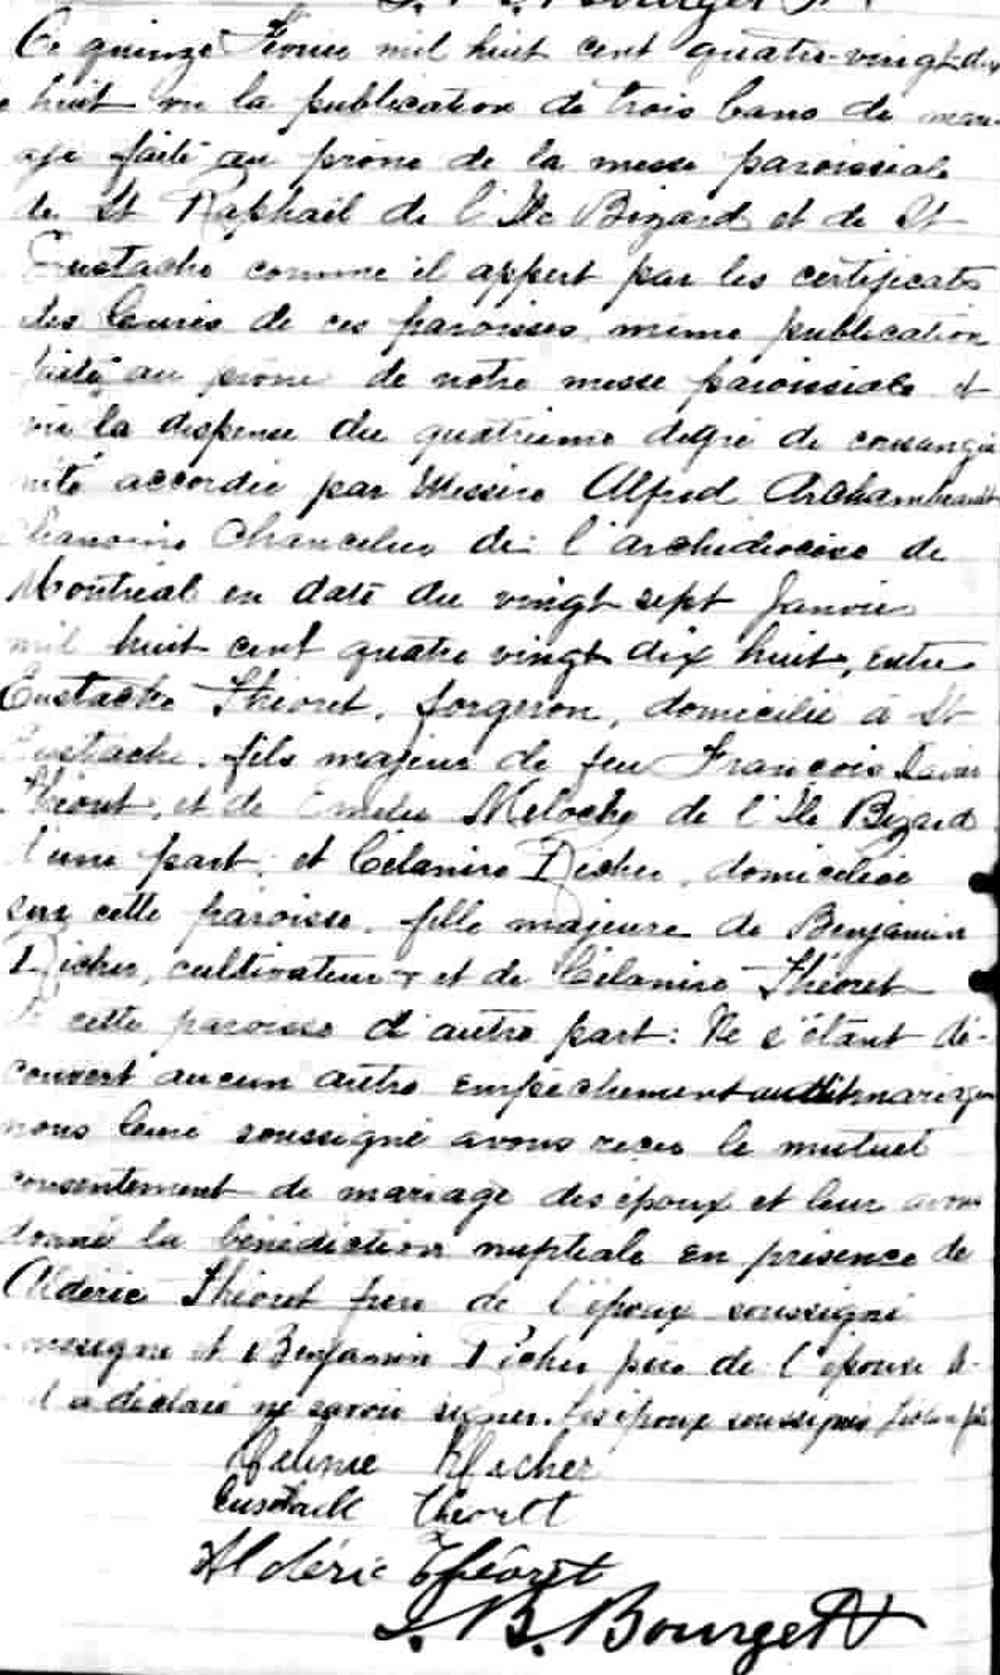 Ce quinze Fevrier mil huit cent quatre-vingt-dix
huit vu la publication de trois bans de mari-
age faite au prône de la messe paroissiale
de St Raphaël de l'Ile Bizard et de St
Eustache comme il appert par les certificats
des Curés de ces paroisses, même publication
faite au prône de notre messe paroissiale et
vu la dispense du quatrième degré de consangui
nité accordée par Messire Alfred Archambeault
Chanoine Chancelier de l'archidiocèse de
Montréal en date du vingt sept Janvier
mil huit cent quatre vingt dix huit, entre
Eustache Théoret, forgeron, domicilié à St
Eustache, fils majeur de feu François Xavier
Théoret, et de Emelie Meloche de l'Ile Bizard
d'une part, et Célanire Richer, domiciliée
sur cette paroisse, fille majeure de Benjamin
Richer, cultivateur, et de Célanire Théoret
de cette paroisse d'autre part: Ne s'étant dé-
couvert aucun autre empêchement au dit mariage
nous Curé soussigné avons reçu le mutuel
consentement de mariage des époux et leur avons
donné la bénédiction nuptiale en présence de
Aldéric Théoret frère de l'époux soussigné
soussigné et Benjamin Richer père de l'épouse
a déclaré ne savoir signer. les époux soussignés
Richer
Eustache Theoret
Aldéric Théorêt
J. B. Bourget Ptr